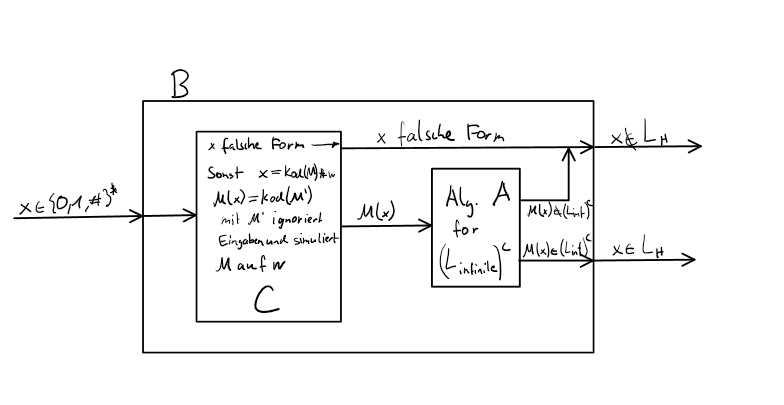 B
x ∈ {0,1,#}*
x falsche Form →
Sonst x = Kod(M)#w
M(x) = Kod(M')
mit M' ignoriert
Eingaben und simuliert
M auf w
C
x falsche Form
M(x)
Alg. A
for
(L infinite)^C
M(x) ∉ (L inf)^C
M(x) ∈ (L inf)^C
x ∉ L_H
x ∈ L_H